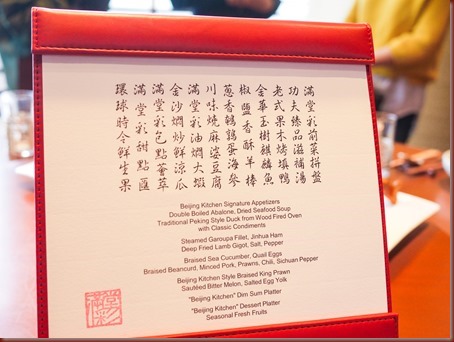 滿堂彩前菜拼盤
功夫臻品滋補湯
老式果木烤填鴨
金華玉樹麒麟魚
椒鹽香酥羊棒
蔥香鵪鶉蛋海參
川味燒麻婆豆腐
滿堂彩油燜大蝦
金沙燜炒鮮涼瓜
滿堂彩包點薈萃
滿堂彩甜點匯
環球時令鮮生果
Beijing Kitchen Signature Appetizers
Double Boiled Abalone, Dried Seafood Soup
Traditional Peking Style Duck from Wood Fired Oven
with Classic Condiments
Steamed Garoupa Fillet, Jinhua Ham
Deep Fried Lamb Gigot, Salt, Pepper
Braised Sea Cucumber, Quail Eggs
Braised Beancurd, Minced Pork, Prawns, Chili, Sichuan Pepper
Beijing Kitchen Style Braised King Prawn
Sautéed Bitter Melon, Salted Egg Yolk
"Beijing Kitchen" Dim Sum Platter
"Beijing Kitchen" Dessert Platter
Seasonal Fresh Fruits